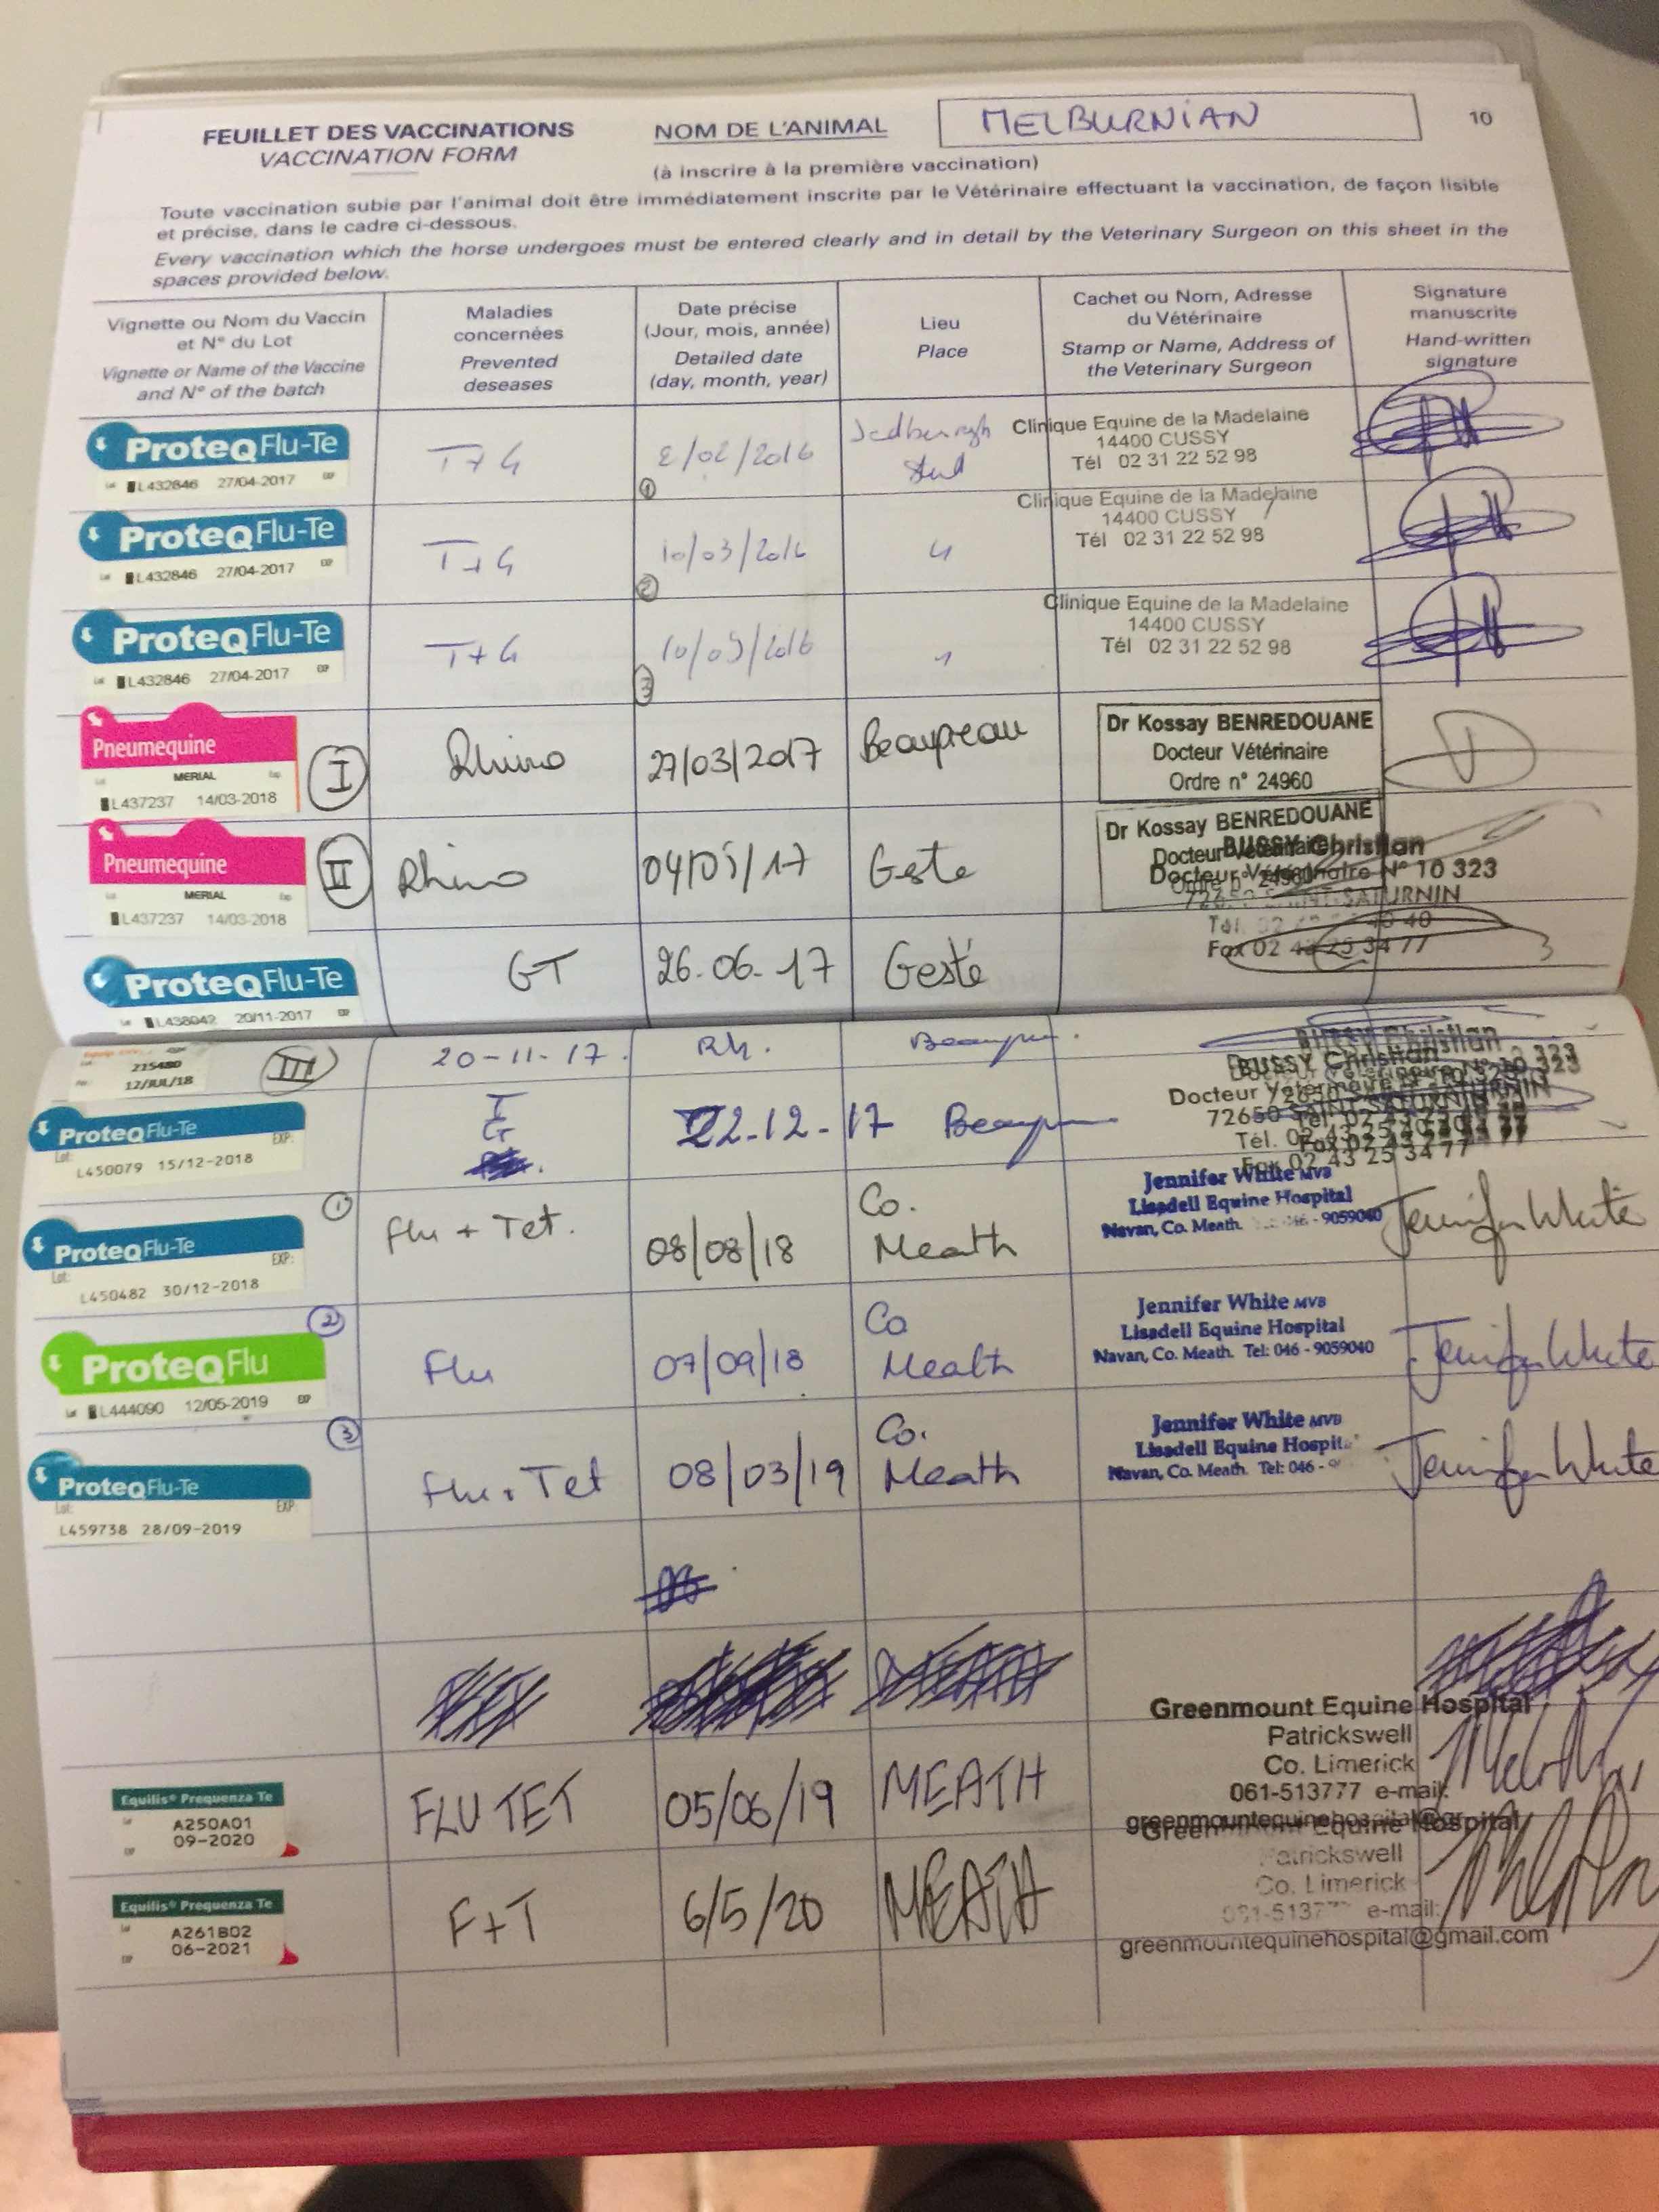 FEUILLET DES VACCINATIONS
VACCINATION FORM
NOM DE L'ANIMAL
MELBURNIAN
10
(à inscrire à la première vaccination)
Toute vaccination subie par l'animal doit être immédiatement inscrite par le Vétérinaire effectuant la vaccination, de façon lisible
et précise, dans le cadre ci-dessous.
Every vaccination which the horse undergoes must be entered clearly and in detail by the Veterinary Surgeon on this sheet in the
spaces provided below.
Vignette ou Nom du Vaccin
et N° du Lot
Vignette or Name of the Vaccine
and N° of the batch
Maladies
concernées
Prevented
deseases
Date précise
(Jour, mois, année)
Detailed date
(day, month, year)
Lieu
Place
Cachet ou Nom, Adresse
du Vétérinaire
Stamp or Name, Address of
the Veterinary Surgeon
Signature
manuscrite
Hand-written
signature
ProteqFlu-Te
L432846 27/04-2017
T+G
2/02/2016
1
Stud
Clinique Equine de la Madelaine
14400 CUSSY
Tél 02 31 22 52 98
ProteqFlu-Te
L432846 27/04-2017
T+G
10/03/2016
2
Clinique Equine de la Madelaine
14400 CUSSY
Tél 02 31 22 52 98
ProteqFlu-Te
L432846 27/04-2017
T+G
3
Clinique Equine de la Madelaine
14400 CUSSY
Tél 02 31 22 52 98
Pneumequine
MERIAL
L437237 14/03-2018
I
Rhino
27/03/2017
Beaupreau
Dr Kossay BENREDOUANE
Docteur Vétérinaire
Ordre n° 24960
Pneumequine
MERIAL
L437237 14/03-2018
II
Rhino
04/05/17
Geste
Dr Kossay BENREDOUANE
BUSSY Christian
Docteur Vétérinaire N° 10 323
72650 SAINT-SATURNIN
Fax 02 43 25 34 77
ProteqFlu-Te
L438042 20/11-2017
GT
26-06-17
Gesté
215480
12/JUL/18
III
20-11-17.
Rh.
BUSSY Christian
ProteqFlu-Te
Lot: EXP:
L450079 15/12-2018
T
G
22-12-17
Docteur Vétérinaire N° 10 323
72650 SAINT-SATURNIN
Fax 02 43 25 34 77
1
ProteqFlu-Te
Lot: EXP:
L450482 30/12-2018
Flu + Tet.
08/08/18
Co.
Meath
Jennifer White MVB
Lisadell Equine Hospital
Navan, Co. Meath. 046 - 9059040
Jennifer White
2
ProteqFlu
L444090 12/05-2019
Flu
07/09/18
Co
Meath
Jennifer White MVB
Lisadell Equine Hospital
Navan, Co. Meath. Tel: 046 - 9059040
Jennifer White
3
ProteqFlu-Te
Lot: EXP:
L459738 28/09-2019
Flu + Tet
08/03/19
Co.
Meath
Jennifer White MVB
Lisadell Equine Hospital
Navan, Co. Meath. Tel: 046 -
Jennifer White
Equilis® Prequenza Te
A250A01
09-2020
FLU TET
05/06/19
MEATH
Greenmount Equine Hospital
Patrickswell
Co. Limerick
061-513777 e-mail:
Equilis® Prequenza Te
A261B02
06-2021
F+T
6/5/20
MEATH
Greenmount Equine Hospital
Patrickswell
Co. Limerick
e-mail:
greenmountequinehospital@gmail.com